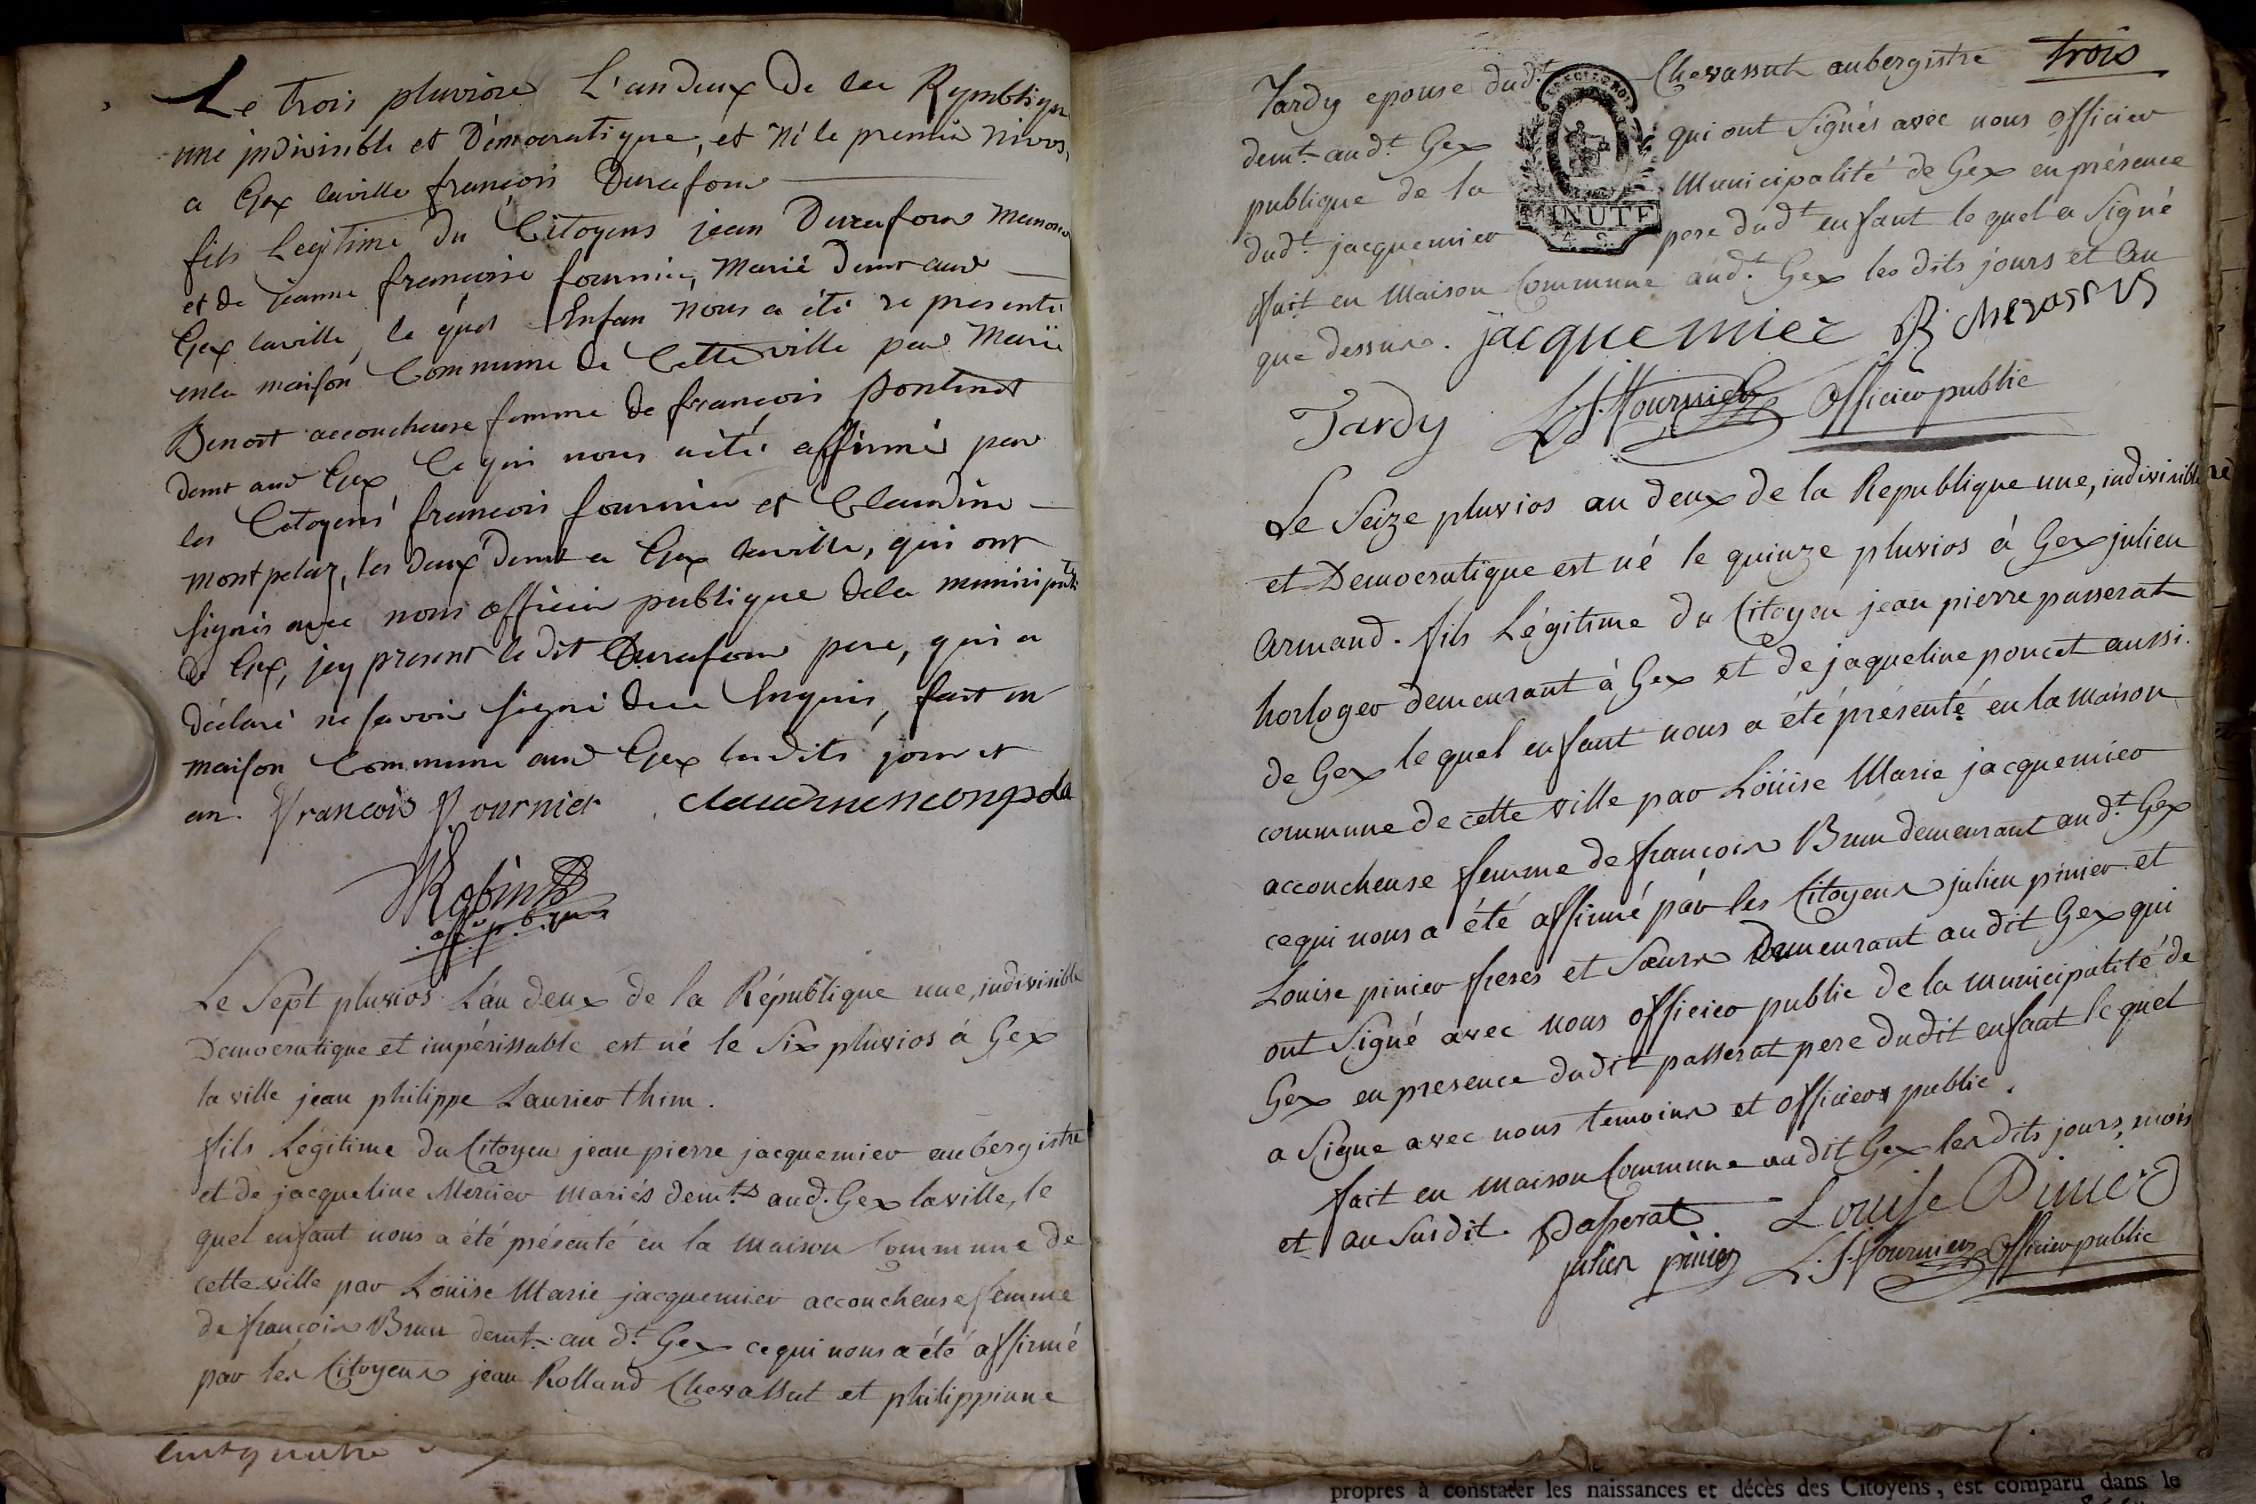 Le trois pluviose L'an deux De la Republique
une jndivisible et Démocratique, et Né le premier Nivos,
a Gex laville françois Durafour
fils Legitime Du Citoyens jean Durafour
et de jeanne francoise fournier, Marié demt aud
Gex laville, le quel Enfan Nous a été représenté
enla maison Commune de Cette ville par Marie
Benoit accoucheuse femme de françois Pontinot
demt aud Gex Ce qui nous aété affirmé par
les Citoyens françois fournier et Claudine
Montpelaz, les deux demt a Gex laville, qui ont
signés avec nous officier publique dela municipté
de Gex, jcy présent le dit Durafour pere, qui a
déclaré ne savoir signé de ce Enquis, fait en
maison Commune aud Gex lesdits jour et
an. François Fournier
Robin
off. p.
Le Sept pluvios L'an deux de la République une, indivisible
Democratique et impérissable est né le Six pluvios à Gex
la ville jean philippe Laurier thim.
fils Légitime du Citoyen jean pierre jacquemier aubergistre
et de jacqueline Mercier mariés demts aud. Gex laville, le
quel enfant nous a été présenté en la Maison Commune de
cette ville par Loüise Marie jacquemier accoucheuse femme
de françois Brun demt. au dt Gex ce qui nous a été affirmé
par les Citoyens jean Rolland Chevassut et philippinne
cent quatre
trois
Tardy epouse dudt Chevassut aubergistre
demt audt Gex qui ont Signés avec nous officier
publique de la Municipalité de Gex en présence
dudt jacquemier pere dudt enfant le quel a Signé
fait en Maison Commune audt Gex les dits jours et an
que dessus. jacquemier R chevassus
MINUTE
4 S
Tardy L.J. Fournier Officier public
Le Seize pluvios an deux de la Republique une, indivisible
et Democratique est né le quinze pluvios à Gex julien
armand. fils Légitime du Citoyen jean pierre passerat
horloger demeurant à Gex et de jaqueline poncet aussi
de Gex le quel enfant nous a été présenté en la Maison
commune de cette ville par Loüise Marie jacquemier
accoucheuse femme de françois Brun demeurant audt Gex
ce qui nous a été affirmé par les Citoyens julien pinier et
Louise pinier freres et Sœurs Demeurant au dit Gex qui
ont Signé avec nous officier public de la municipalité de
Gex en presence dudit passerat pere dudit enfant le quel
a Signe avec nous temoins et officier public.
fait en maison Commune audit Gex les dits jours, mois
et an Susdit. Passerat Louise Pinier
julien pinier L.J. Fournier Officier public
propres à constater les naissances et décès des Citoyens, est comparu dans le